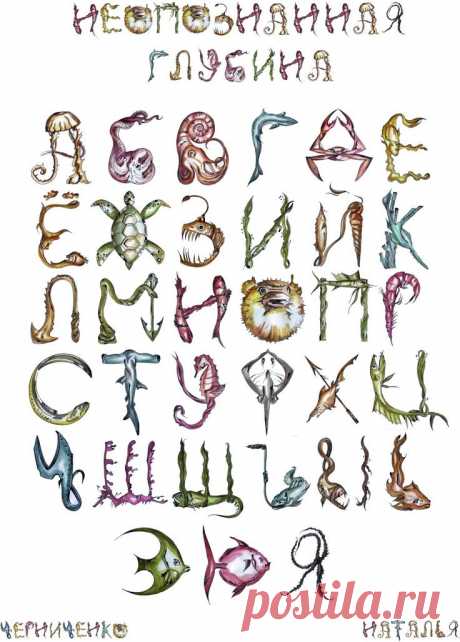 НЕОПОЗНАННАЯ
ГЛУБИНА
А Б В Г Д Е
Ё Ж З И Й К
Л М Н О П Р
С Т У Ф Х Ц
Ч Ш Щ Ъ Ы Ь
Э Ю Я
ЧЕРНИЧЕНКО НАТАЛЬЯ
postila.ru